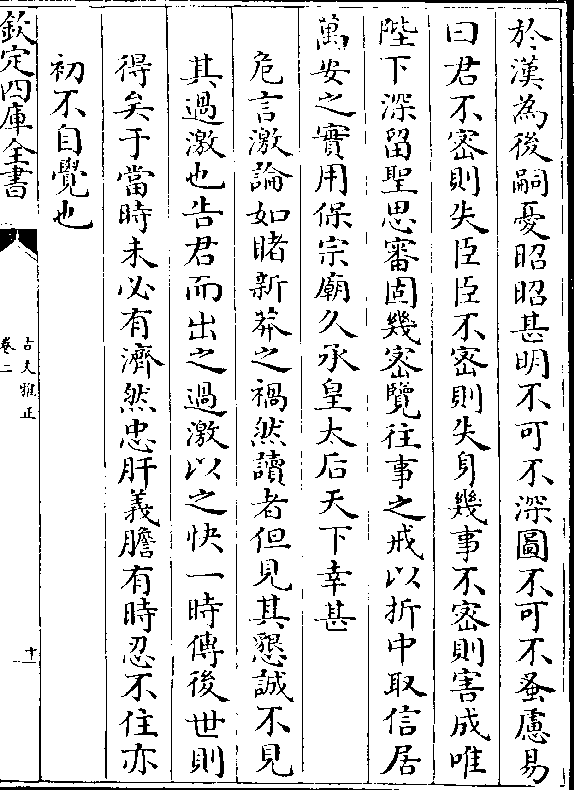 於漢為後嗣憂昭昭甚明不可不深圖不可不蚤慮易
曰君不密則失臣臣不密則失身幾事不密則害成唯
陛下深留聖思審固幾密覽往事之戒以折中取信居
萬安之實用保宗廟久承皇太后天下幸甚
危言激論如睹新莽之禍然讀者但見其懇誠不見
其過激也告君而出之過激以之快一時傳後世則
得矣于當時未必有濟然忠肝義膽有時忍不住亦
初不自覺也
欽定四庫全書
古文雅正
卷二
十一